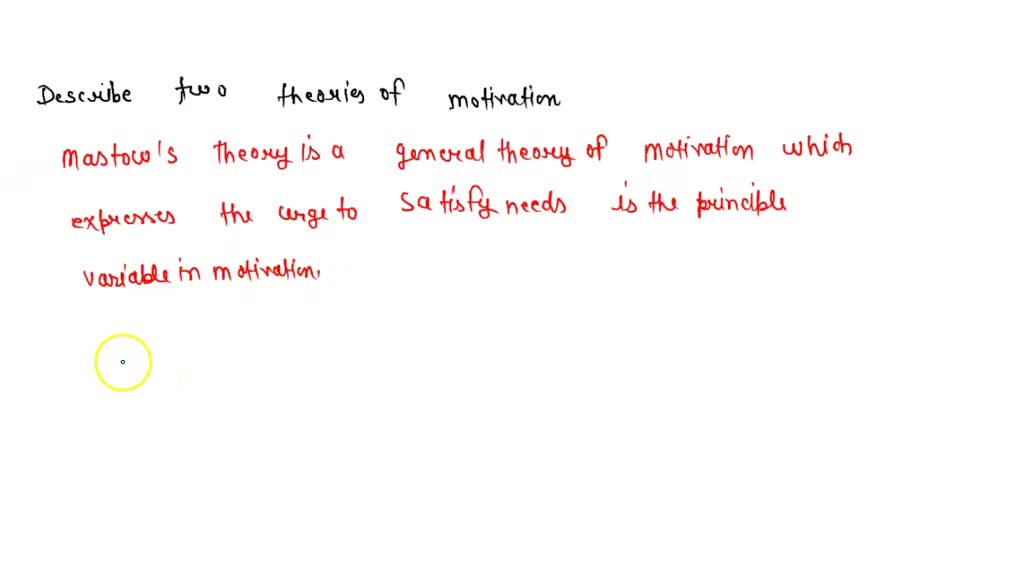 Describe two theories of motivation
Mastow's theory is a general theory of motivation which
expresses the urge to satisfy needs is the principle
variable in motivation.